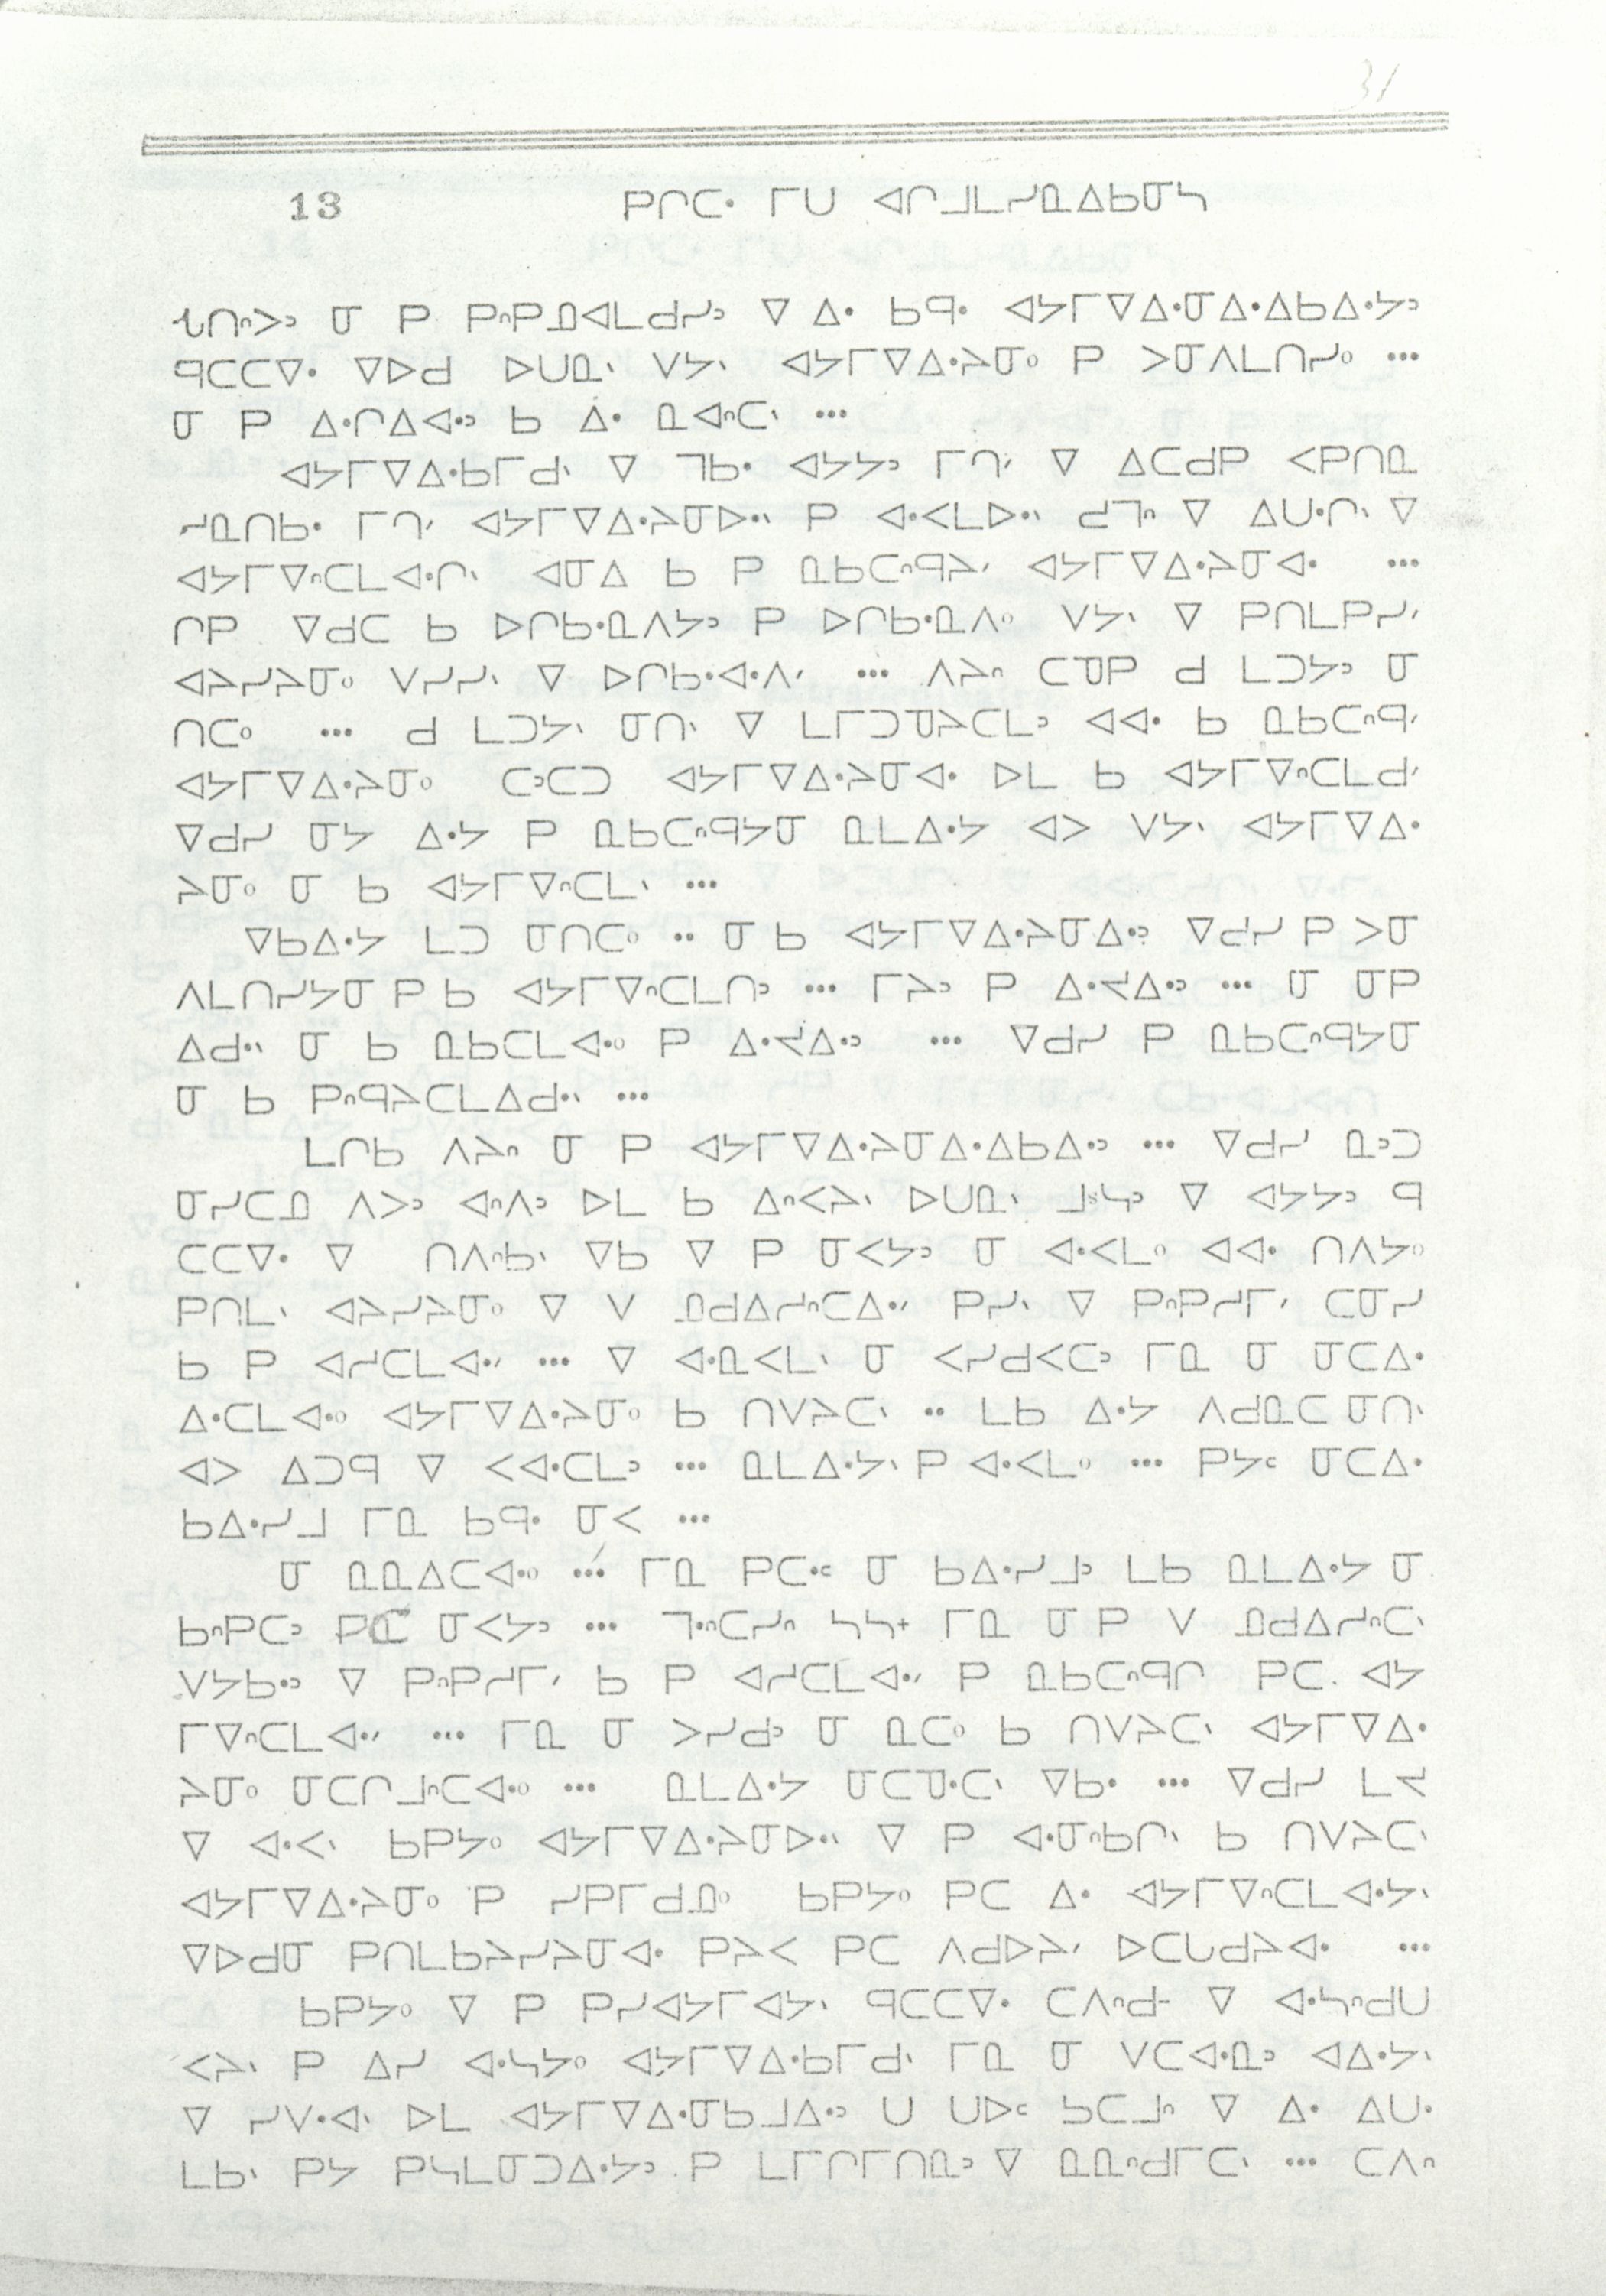 13 ᑭᒋᑕᐧ ᒥᑌ ᐊᒋᒧᒪᓯᓇᐃᑲᓂᓴ
ᓂ ᑭ ᑭᐢᑭᓄᐊᒪᑯᓯᐣ ᐁ ᐃᐧ ᑲᑫᐧ ᐊᔭᒥᐁᐃᐧᓂᐃᐧᐃᑲᐃᐧᔭᐣ
ᑫᑕᑕᐁᐧ ᐁᐅᑯ ᐅᑌᓇᐠ ᐯᔭᐠ ᐊᔭᒥᐁᐃᐧᔨᓂᐤ ᑭ ᐳᓂᐱᒪᑎᓯᐤ ...
ᓂ ᑭ ᐃᐧᒋᐃᐊᐧᐣ ᑲ ᐃᐧ ᓇᐊᐧᐢᑕᐠ ...
ᐊᔭᒥᐁᐃᐧᑲᒥᑯᐠ ᐁ ᒣᑲᐧ ᐊᔭᔭᐣ ᒥᐢᑎᐟ ᐁ ᐃᑕᑯᑭ ᐸᑭᑎᓇ
ᓯᓇᑎᑲᐧ ᒥᐢᑎᐟ ᐊᔭᒥᐁᐃᐧᔨᓂᐅᐧᐠ ᑭ ᐊᐧᐸᒪᐅᐧᐠ ᑯᒣᐢ ᐁ ᐃᑌᐧᒋᐠ ᐁ
ᐊᔭᒥᐁᐢᑕᒪᐊᐧᒋᐠ ᐊᓂᐃ ᑲ ᑭ ᓇᑲᑕᐢᑫᔨᐟ ᐊᔭᒥᐁᐃᐧᔨᓂᐊᐧ ...
ᒋᑭ ᐁᑯᑕ ᑲ ᐅᒋᑲᐧᓇᐱᔭᐣ ᑭ ᐅᒋᑲᐧᓇᐱᐤ ᐯᔭᐠ ᐁ ᑭᑎᒪᑭᓯᐟ
ᐊᔨᓯᔨᓂᐤ ᐯᓯᓯᐠ ᐁ ᐅᒋᑲᐧᐊᐧᐱᐟ ... ᐱᔨᐢ ᑕᓀᑭ ᑯ ᒪᑐᔭᐣ ᓂ
ᑎᑕᐤ ... ᑯ ᒪᑐᔭᐠ ᓂᑎᐠ ᐁ ᒪᒥᑐᓀᔨᑕᒪᐣ ᐊᐊᐧ ᑲ ᓇᑲᑕᐢᑫᐟ
ᐊᔭᒥᐁᐃᐧᔨᓂᐤ ᑕᐣᑕᑐ ᐊᔭᒥᐁᐃᐧᔨᓂᐊᐧ ᐅᒪ ᑲ ᐊᔭᒥᐁᐢᑕᒪᑯᐟ
ᐁᑯᓯ ᓂᔭ ᐃᐧᔭ ᑭ ᓇᑲᑕᐢᑫᔭᓂ ᓇᒪᐃᐧᔭ ᐊᐳ ᐯᔭᐠ ᐊᔭᒥᐁᐃᐧ
ᔨᓂᐤ ᓂ ᑲ ᐊᔭᒥᐁᐢᑕᒪᐠ ...
ᐁᑲᐃᐧᔭ ᒪᑐ ᓂᑎᑕᐤ .. ᓂ ᑲ ᐊᔭᒥᐁᐃᐧᔨᓂᐃᐧᐣ ᐁᑯᓯ ᑭ ᐳᓂ
ᐱᒪᑎᓯᔭᓂ ᑭ ᑲ ᐊᔭᒥᐁᐢᑕᒪᑎᐣ ... ᒥᔨᐣ ᑭ ᐃᐧᔫᐃᐧᐣ ... ᓂ ᓂᑭ
ᐃᑯᐧᐠ ᓂ ᑲ ᓇᑲᑕᒪᐊᐧᐤ ᑭ ᐃᐧᔫᐃᐧᐣ ... ᐁᑯᓯ ᑭ ᓇᑲᑕᐢᑫᔭᓂ
ᓂ ᑲ ᑭᐢᑫᔨᑕᒪᐃᑯᐧᐠ ...
ᒪᒋᑲ ᐱᔨᐢ ᓂ ᑭ ᐊᔭᒥᐁᐃᐧᔨᓂᐃᐧᐃᑲᐃᐧᐣ ... ᐁᑯᓯ ᓇᐣᑐ
ᓂᓯᑕᓄ ᐱᐳᐣ ᐊᐢᐱᐣ ᐅᒪ ᑲ ᐃᐢᐸᔨᐠ ᐅᑌᓇᐠ ᒧᐢᓴᐣ ᐁ ᐊᔭᔭᐣ ᑫ
ᑕᑕᐁᐧ ᐁ ᑎᐱᐢᑲᐠ ᐁᑲ ᐁ ᑭ ᓂᐸᔭᐣ ᓂ ᐊᐧᐸᒪᐤ ᐊᐊᐧ ᑎᐱᔭᐤ
ᑭᑎᒪᐠ ᐊᔨᓯᔨᓂᐤ ᐁ ᐯ ᓄᑯᐃᓯᐢᑕᐃᐧᐟ ᑭᓯᐠ ᐁ ᑭᐢᑭᓯᒥᐟ ᑕᓂᓯ
ᑲ ᑭ ᐊᓯᑕᒪᐊᐧᐟ ... ᐁ ᐊᐧᓇᐸᒪᐠ ᓂ ᐸᓯᑯᐸᑕᐣ ᒥᓇ ᓂ ᓂᑕᐃᐧ
ᐃᐧᑕᒪᐊᐧᐤ ᐊᔭᒥᐁᐃᐧᔨᓂᐤ ᑲ ᑎᐯᔨᑕᐠ .. ᒪᑲ ᐃᐧᔭ ᐱᑯᓇᑕ ᓂᑎᐠ
ᐊᐳ ᐃᑐᑫ ᐁ ᐸᐊᐧᑕᒪᐣ ... ᓇᒪᐃᐧᔭᐠ ᑭ ᐊᐧᐸᒪᐤ ... ᑭᔭᒼ ᓂᑕᐃᐧ
ᑲᐃᐧᓯᒧ ᒥᓇ ᑲᑫᐧ ᓂᐸ ...
ᓂ ᓇᓇᐃᑕᐊᐧᐤ ... ᒥᓇ ᑭᑕᐧᒼ ᓂ ᑲᐃᐧᓯᒧᐣ ᒪᑲ ᓇᒪᐃᐧᔭ ᓂ
ᑲᐢᑭᑕᐣ ᓂᐸᔭᐣ ... ᒣᐧᐢᑕᓯᐢ ᓴᓴᕀ ᒥᓇ ᓂ ᑭ ᐯ ᓄᑯᐃᓯᐢᑕᐠ
ᐯᔭᑲᐧᐣ ᐁ ᑭᐢᑭᓯᒥᐟ ᑲ ᑭ ᐊᓯᑕᒪᐊᐧᐟ ᑭ ᓇᑲᑕᐢᑫᒋ ᑭᑕ ᐊᔭ
ᒥᐁᐢᑕᒪᐊᐧᐟ ... ᒥᓇ ᓂ ᐳᓯᑯᐣ ᓂ ᓇᑕᐤ ᑲ ᑎᐯᔨᑕᐠ ᐊᔭᒥᐁᐃᐧ
ᔨᓂᐤ ᓂᑕᒋᒧᐢᑕᐊᐧᐤ ... ᓇᒪᐃᐧᔭ ᓂᑕᓀᐧᑕᐠ ᐁᑲᐧ ... ᐁᑯᓯ ᒪᔫ
ᐁ ᐊᐧᐸᐠ ᑲᑭᔭᐤ ᐊᔭᒥᐁᐃᐧᔨᓂᐅᐧᐠ ᐁ ᑭ ᐊᐧᓂᐢᑲᒋᐠ ᑲ ᑎᐯᔨᑕᐠ
ᐊᔭᒥᐁᐃᐧᔨᓂᐤ ᑭ ᓯᑭᒥᑯᓄᐤ ᑲᑭᔭᐤ ᑭᑕ ᐃᐧ ᐊᔭᒥᐁᐢᑕᒪᐊᐧᔭᐠ
ᐁᐅᑯᓂ ᑭᑎᒪᑲᔨᓯᔨᓂᐊᐧ ᑭᔨᐸ ᑭᑕ ᐱᑯᐅᔨᐟ ᐅᑕᑌᑯᔨᐊᐧ ...
ᑲᑭᔭᐤ ᐁ ᑭ ᑭᓯᐊᔭᒥᐊᔭᐠ ᑫᑕᑕᐁᐧ ᑕᐱᐢᑯᐨ ᐁ ᐊᐧᓴᐢᑯᑌ
ᐸᔨᐠ ᑭ ᐃᓯ ᐊᐧᓴᔭᐤ ᐊᔭᒥᐁᐃᐧᑲᒥᑯᐠ ᒥᓇ ᓂ ᐯᑕᐊᐧᓇᐣ ᐊᐃᐧᔭᐠ
ᐁ ᓯᐯᐧᐊᐧᐠ ᐅᒪ ᐊᔭᒥᐁᐃᐧᓂᑲᒧᐃᐧᐣ ᑌ ᑌᐅᒼ ᓴᑕᒧᐢ ᐁ ᐃᐧ ᐃᑌᐧ
ᒪᑲᐠ ᑭᔭ ᑭᓴᒪᓂᑐᐃᐧᔭᐣ ᑭ ᒪᒥᒋᒥᑎᓇᐣ ᐁ ᓇᓇᐢᑯᒥᑕᐠ ... ᑕᐱᐢ